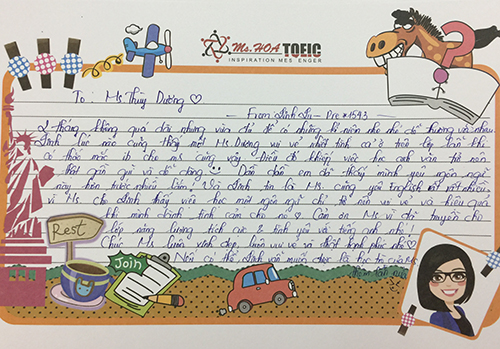 Ms.HOA TOEIC
INSPIRATION MESSENGER
To: Ms Thùy Dương ♡
From Linh Lu - Pre *1543
2 tháng không quá dài nhưng vừa đủ để có những kỉ niệm nho nhỏ dễ thương với nhau
Linh lúc nào cũng thấy một Ms Dương vui vẻ nhiệt tình cả ở trên lớp lẫn khi
có thắc mắc ib cho ms cũng vậy. Điều đó khiến việc học anh văn trở nên
thật gần gũi và dễ dàng. Dần dần em đã thấy mình yêu ngôn ngữ
này hơn trước nhiều lắm! Và Linh tin là Ms cũng yêu English rất rất nhiều
vì Ms cho Linh thấy việc học một ngôn ngữ chỉ trở nên vui vẻ và hiệu quả
khi mình dành tình cảm cho nó ♡ Cảm ơn Ms vì đã truyền cho
lớp năng lượng tích cực & tình yêu với tiếng anh nhé!
Chúc Ms luôn xinh đẹp, luôn vui vẻ và thật hạnh phúc nhé ♡
Nếu có thể Linh vẫn muốn được là học trò của Ms
Rest
Join